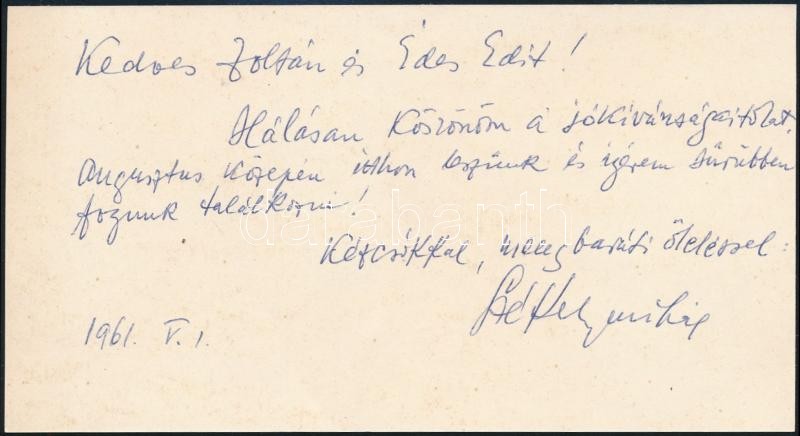 Kedves Zoltán és Édes Edit!
Hálásan köszönöm a jókívánságaitokat.
Augusztus közepén itthon leszünk és igérem sűrűbben
fogunk találkozni!
Kézcsókkal, meleg baráti öleléssel:
Székely Mihály
1961. V. 1.
darabanth